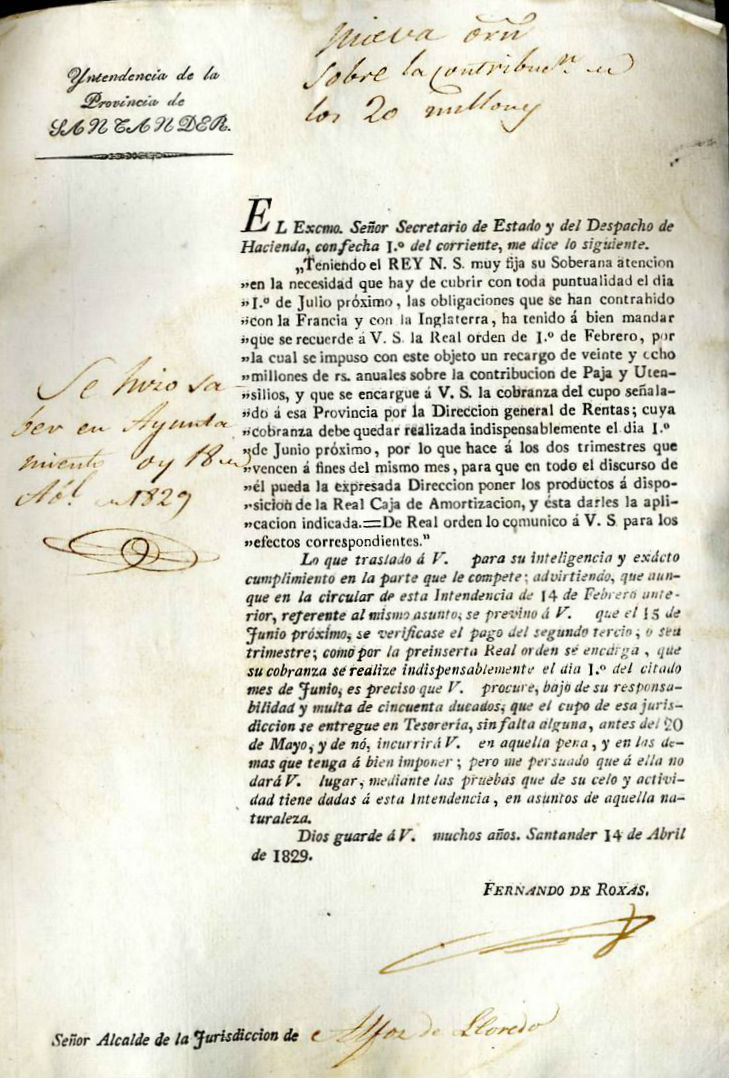 Yntendencia de la
Provincia de
SANTANDER.
nueva orn
sobre la contribucn. de
los 20 millones
EL Excmo. Señor Secretario de Estado y del Despacho de
Hacienda, con fecha 1.º del corriente, me dice lo siguiente.
„Teniendo el REY N. S. muy fija su Soberana atencion
”en la necesidad que hay de cubrir con toda puntualidad el dia
”1.º de Julio próximo, las obligaciones que se han contrahido
”con la Francia y con la Inglaterra, ha tenido á bien mandar
”que se recuerde á V. S. la Real orden de 1.º de Febrero, por
”la cual se impuso con este objeto un recargo de veinte y ocho
”millones de rs. anuales sobre la contribucion de Paja y Uten-
”silios, y que se encargue á V. S. la cobranza del cupo señala-
”do á esa Provincia por la Direccion general de Rentas; cuya
”cobranza debe quedar realizada indispensablemente el dia 1.º
”de Junio próximo, por lo que hace á los dos trimestres que
”vencen á fines del mismo mes, para que en todo el discurso de
”él pueda la expresada Direccion poner los productos á dispo-
”sicion de la Real Caja de Amortizacion, y ésta darles la apli-
”cacion indicada.=De Real orden lo comunico á V. S. para los
”efectos correspondientes.”
Lo que traslado á V. para su inteligencia y exácto
cumplimiento en la parte que le compete; advirtiendo, que aun-
que en la circular de esta Intendencia de 14 de Febrero ante-
rior, referente al mismo asunto, se previno á V. que el 15 de
Junio próximo, se verificase el pago del segundo tercio, o sea
trimestre; como por la preinserta Real orden se encarga, que
su cobranza se realize indispensablemente el dia 1.º del citado
mes de Junio, es preciso que V. procure, bajo de su responsa-
bilidad y multa de cincuenta ducados, que el cupo de esa juris-
diccion se entregue en Tesorería, sin falta alguna, antes del 20
de Mayo, y de nó, incurrirá V. en aquella pena, y en las de-
mas que tenga á bien imponer; pero me persuado que á ella no
dará V. lugar, mediante las pruebas que de su celo y activi-
dad tiene dadas á esta Intendencia, en asuntos de aquella na-
turaleza.
Dios guarde á V. muchos años. Santander 14 de Abril
de 1829.
FERNANDO DE ROXAS.
Se hizo sa-
ber en Ayunta
miento oy 18 de
Abl. de 1829
Señor Alcalde de la Jurisdiccion de Alfoz de Lloredo